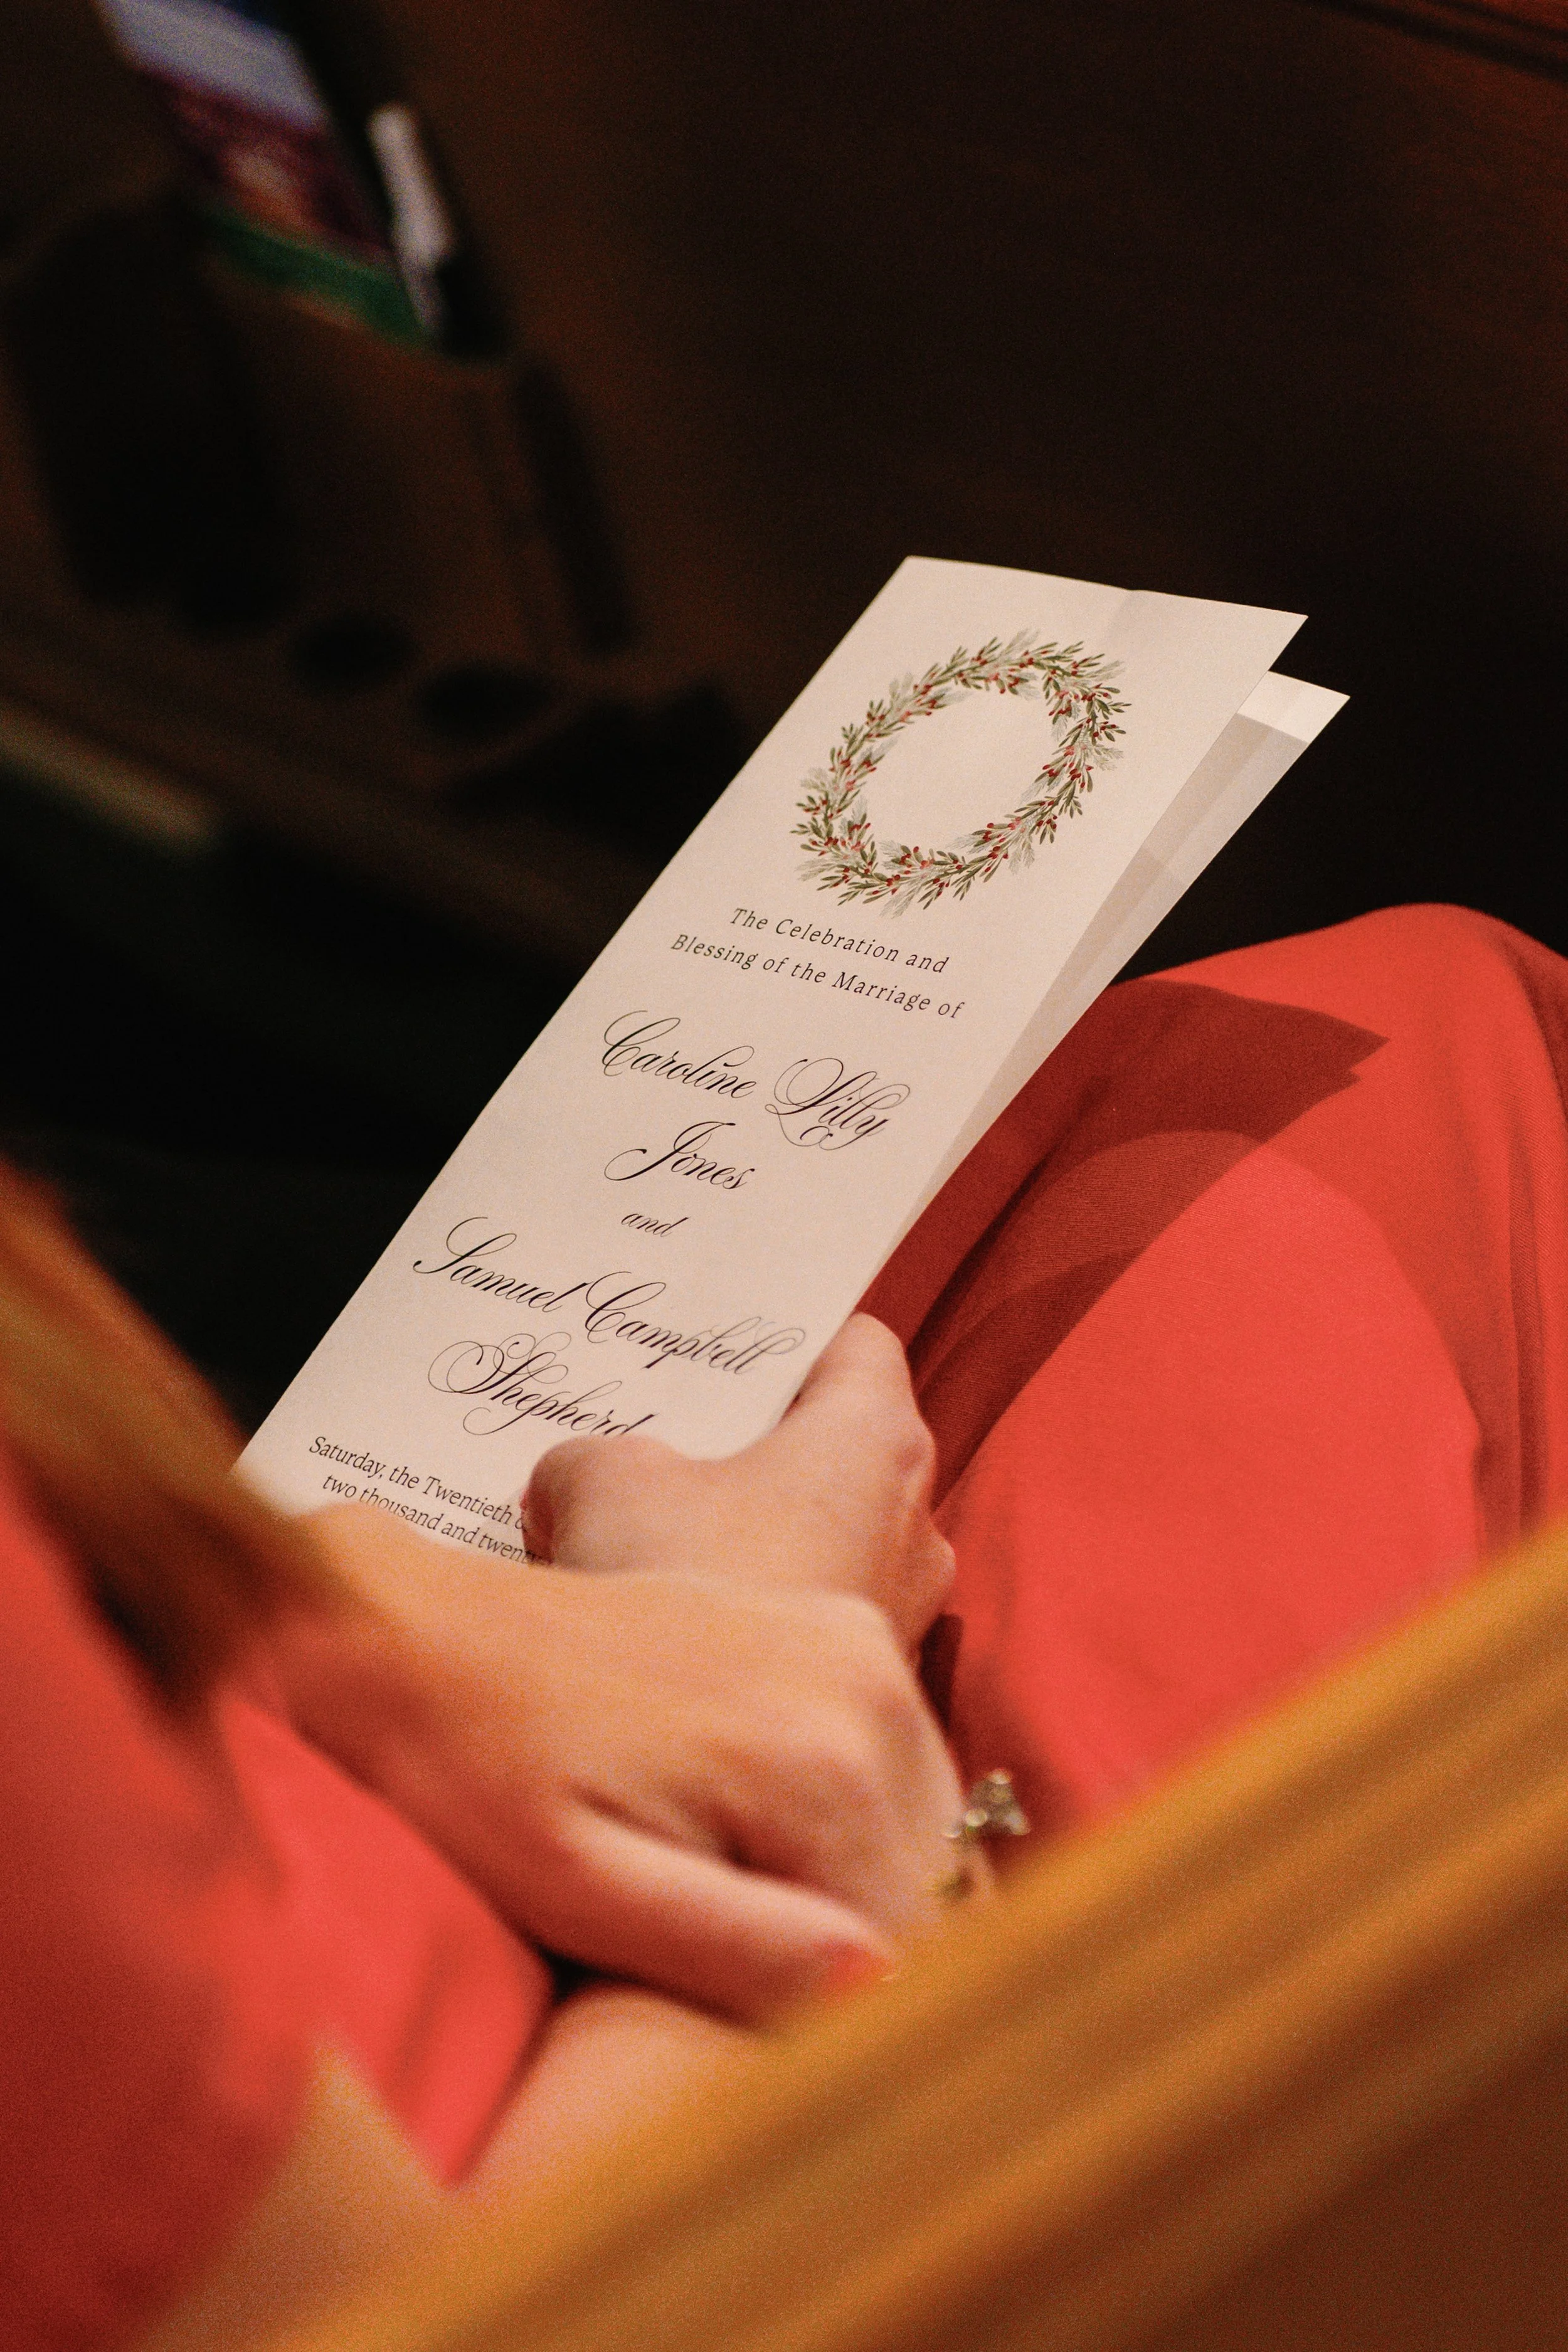 The Celebration and
Blessing of the Marriage of
Caroline Lilly
Jones
and
Samuel Campbell
Shepherd
Saturday, the Twentieth
two thousand and